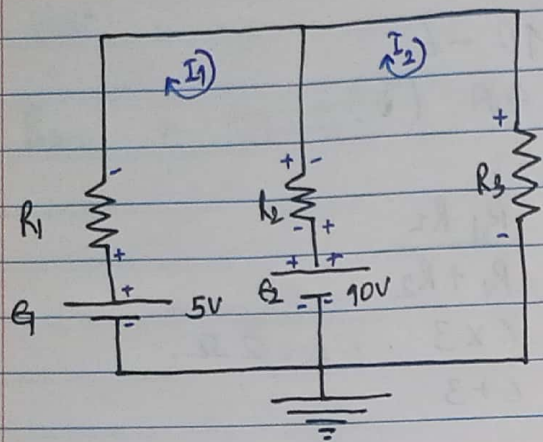 I1 I2
- + - +
R1 R2 R3
+ - + -
+ + +
E1 5V E2 10V
- - -